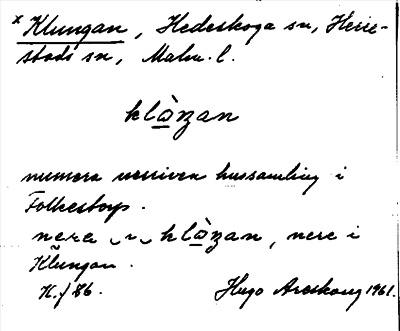 x Klungan, Hedeskoga sn, Herre-
stads sn, Malm. l.
klàŋan
numera rensiven hussamling i
Folkestorp.
nere ‿ ~ klàŋan, nere i
Klungan.
K. / 86. Hugo Areskoug 1961.